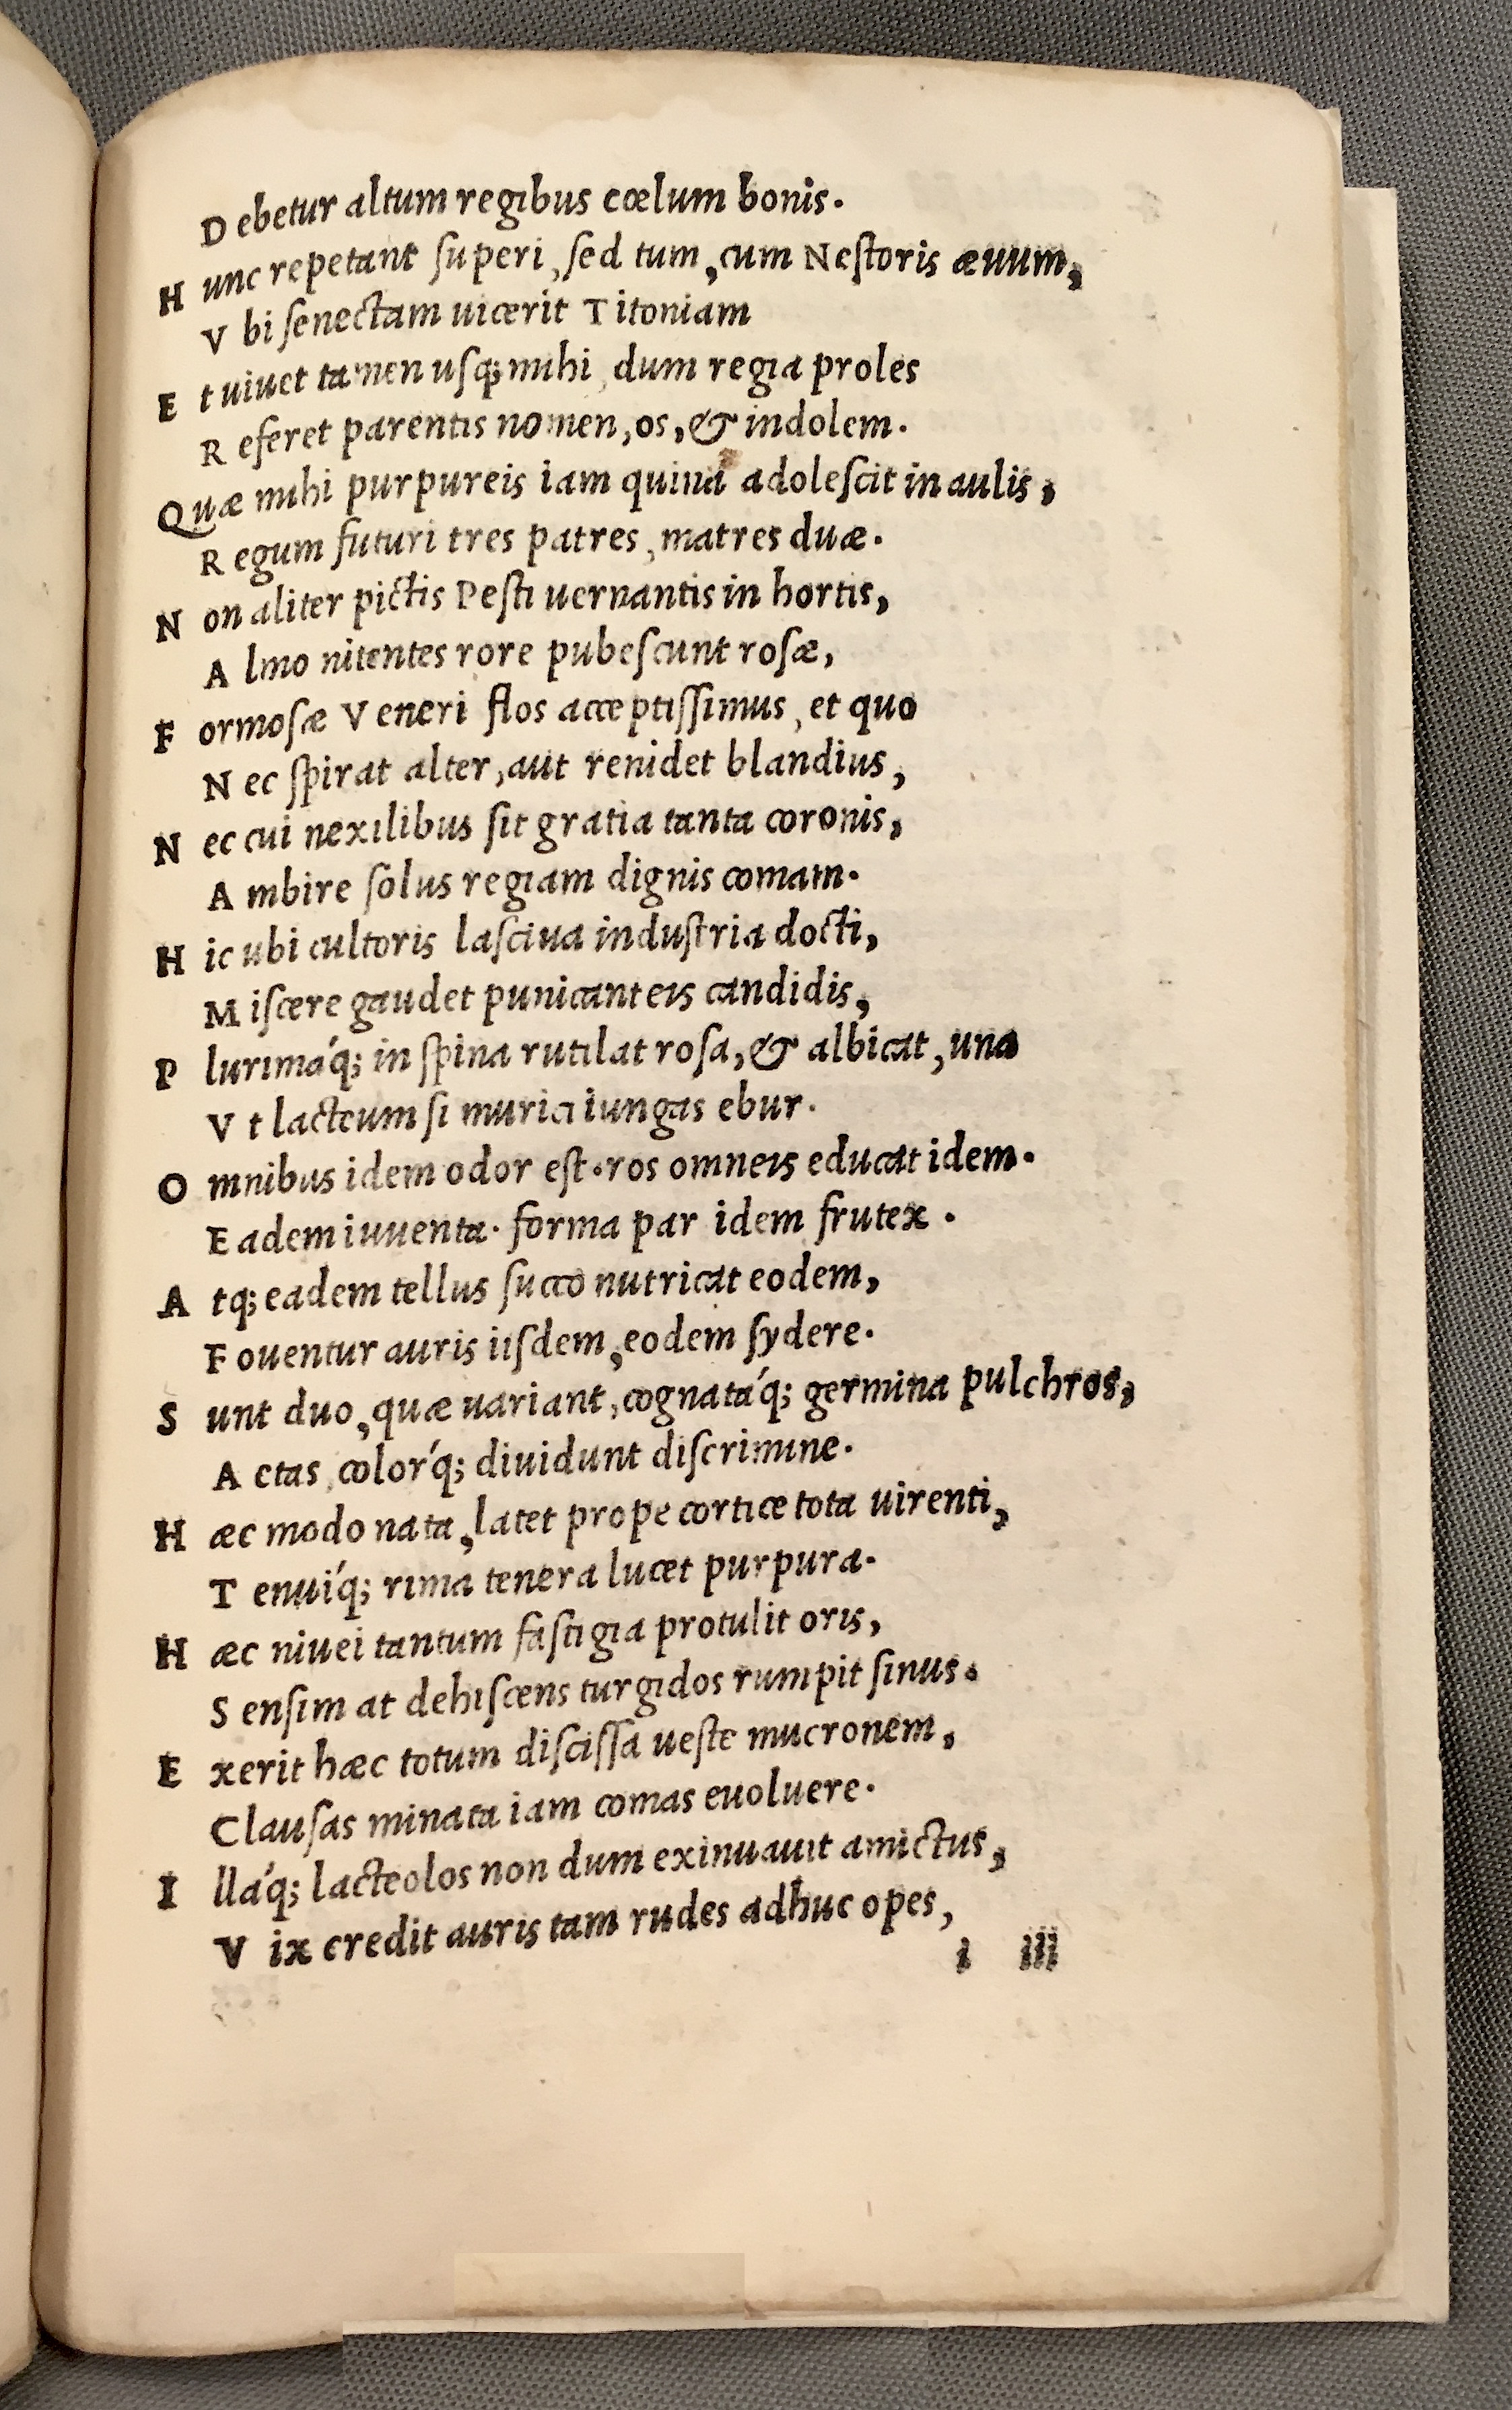 Debetur altum regibus cœlum bonis.
Hunc repetant superi, sed tum, cum Nestoris æuum,
Vbi senectam uicerit Titoniam
Et uiuet tamen usq; mihi, dum regia proles
Referet parentis nomen, os, & indolem.
Quæ mihi purpureis iam quina adolescit in aulis,
Regum futuri tres patres, matres duæ.
Non aliter pictis Pesti uernantis in hortis,
Almo nitentes rore pubescunt rosæ,
Formosæ Veneri flos acceptissimus, et quo
Nec spirat alter, aut renidet blandius,
Nec cui nexilibus sit gratia tanta coronis,
Ambire solus regiam dignis comam.
Hic ubi cultoris lasciua industria docti,
Miscere gaudet punicanteis candidis,
Plurimáq; in spina rutilat rosa, & albicat, una
Vt lacteum si murici iungas ebur.
Omnibus idem odor est. ros omneis educat idem.
Eadem iuuenta. forma par idem frutex.
Atq; eadem tellus succo nutricat eodem,
Fouentur auris iisdem, eodem sydere.
Sunt duo, quæ uariant, cognatáq; germina pulchros,
Aetas, colorq́; diuidunt discrimine.
Hæc modo nata, latet prope cortice tota uirenti,
Tenuíq; rima tenera lucet purpura.
Hæc niuei tantum fastigia protulit oris,
Sensim at dehiscens turgidos rumpit sinus.
Exerit hæc totum discissa ueste mucronem,
Clausas minata iam comas euoluere.
Illáq; lacteolos non dum exinuauit amictus,
Vix credit auris tam rudes adhuc opes,
i iii